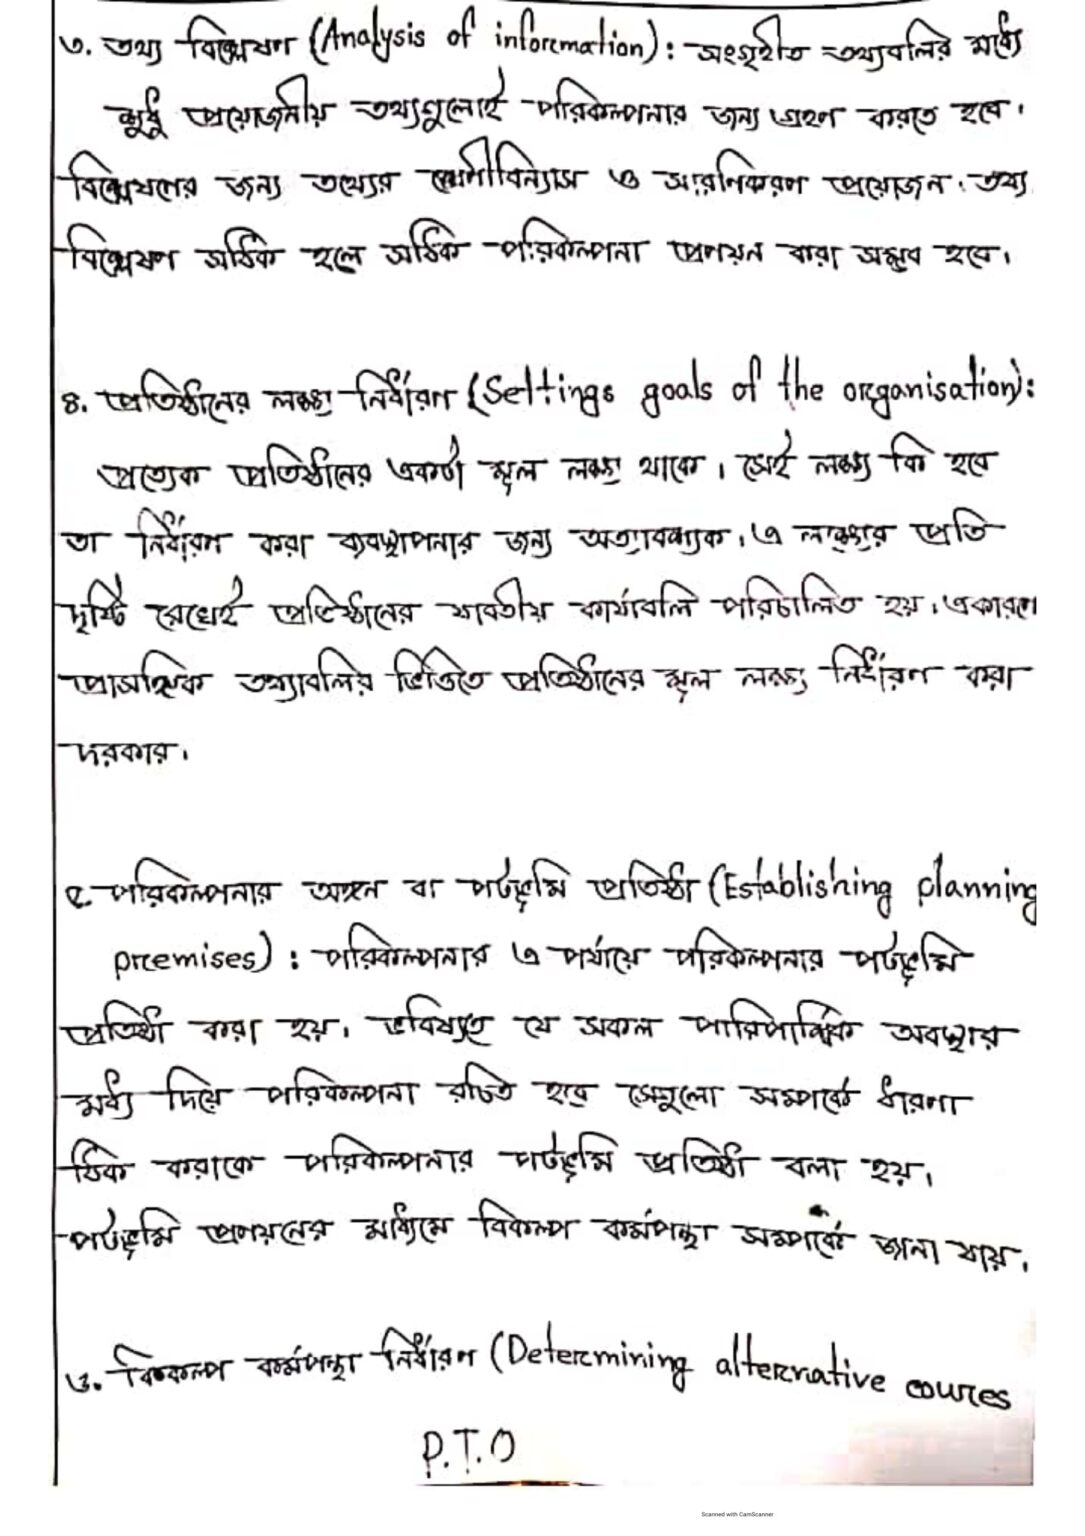 ৩. তথ্য বিশ্লেষণ (Analysis of information): সংগৃহীত তথ্যাবলির মধ্যে
শুধু প্রয়োজনীয় তথ্যগুলোই পরিকল্পনার জন্য গ্রহণ করতে হবে।
বিশ্লেষণের জন্য তথ্যের শ্রেণীবিন্যাস ও সারণিকরণ প্রয়োজন। তথ্য
বিশ্লেষণ সঠিক হলে সঠিক পরিকল্পনা প্রণয়ন করা সম্ভব হবে।
৪. প্রতিষ্ঠানের লক্ষ্য নির্ধারণ (Settings goals of the organisation):
প্রত্যেক প্রতিষ্ঠানের একটা মূল লক্ষ্য থাকে। সেই লক্ষ্য কি হবে
তা নির্ধারণ করা ব্যবস্থাপনার জন্য অত্যাবশ্যক। এ লক্ষ্যের প্রতি
দৃষ্টি রেখেই প্রতিষ্ঠানের যাবতীয় কার্যাবলি পরিচালিত হয়। একারণে
প্রাসঙ্গিক তথ্যাবলির ভিত্তিতে প্রতিষ্ঠানের মূল লক্ষ্য নির্ধারণ করা
দরকার।
৫. পরিকল্পনার অঙ্গন বা পটভূমি প্রতিষ্ঠা (Establishing planning
premises): পরিকল্পনার এ পর্যায়ে পরিকল্পনার পটভূমি
প্রতিষ্ঠা করা হয়। ভবিষ্যতে যে সকল পারিপার্শ্বিক অবস্থার
মধ্য দিয়ে পরিকল্পনা রচিত হবে সেগুলো সম্পর্কে ধারণা
ঠিক করাকে পরিকল্পনার পটভূমি প্রতিষ্ঠা বলা হয়।
পটভূমি প্রণয়নের মাধ্যমে বিকল্প কর্মপন্থা সম্পর্কে জানা যায়।
৬. বিকল্প কর্মপন্থা নির্ধারণ (Determining alternative cources
P.T.O
Scanned with CamScanner